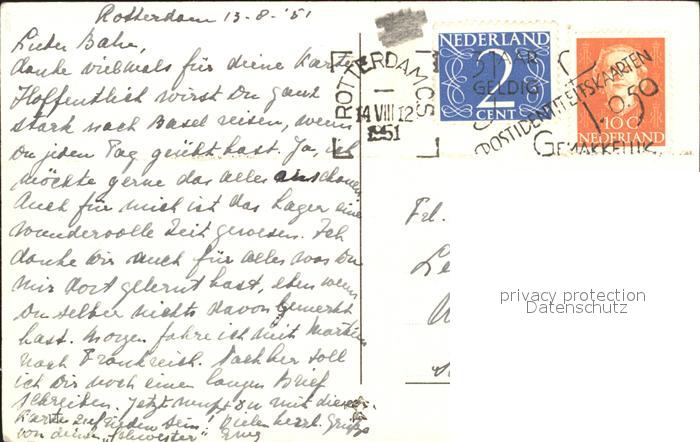 Rotterdam 13-8-'51
Lieber Bahe,
danke vielmals für deine Karte
Hoffentlich wirst Du ganz
stark nach Basel reisen, wenn
Du jeden Tag geübt hast. Ja, ich
möchte gerne das alles anschauen
Auch für mich ist das Lager eine
wundervolle Zeit gewesen. Ich
danke Dir auch für alles was Du
mir dort gelernt hast, eben wenn
Du selber nichts davon bemerkt
hast. Morgen fahre ich mit Martien
nach Frankreich. Nachher soll
ich Dir noch einen langen Brief
schreiben. Jetzt mußt Du mit dieser
Karte zufrieden sein! Vielen herzl. Grüße
von deiner „Schwester"
NEDERLAND
2
CENT
ROTTERDAM CS
14 VIII 12
1951
JAAR
GELDIG
POSTIDENTITEITSKAARTEN
f 0.50
GEMAKKELIJK
10 C
NEDERLAND
Frl.
Le
privacy protection
Datenschutz